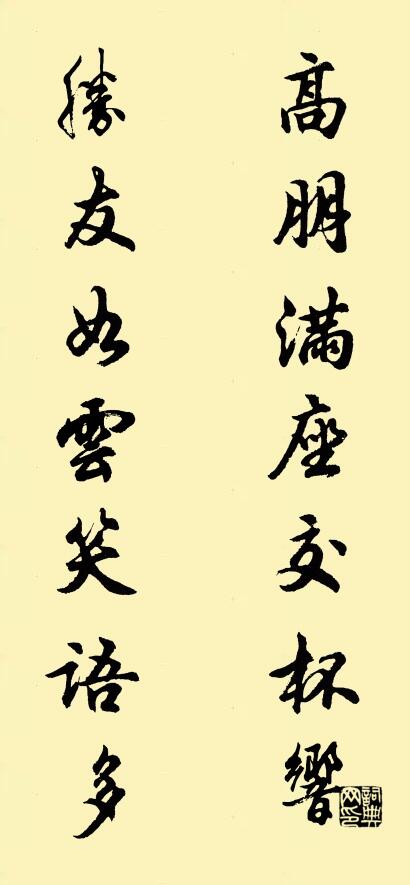 高朋滿座交杯響
勝友如雲笑語多
詞典網印